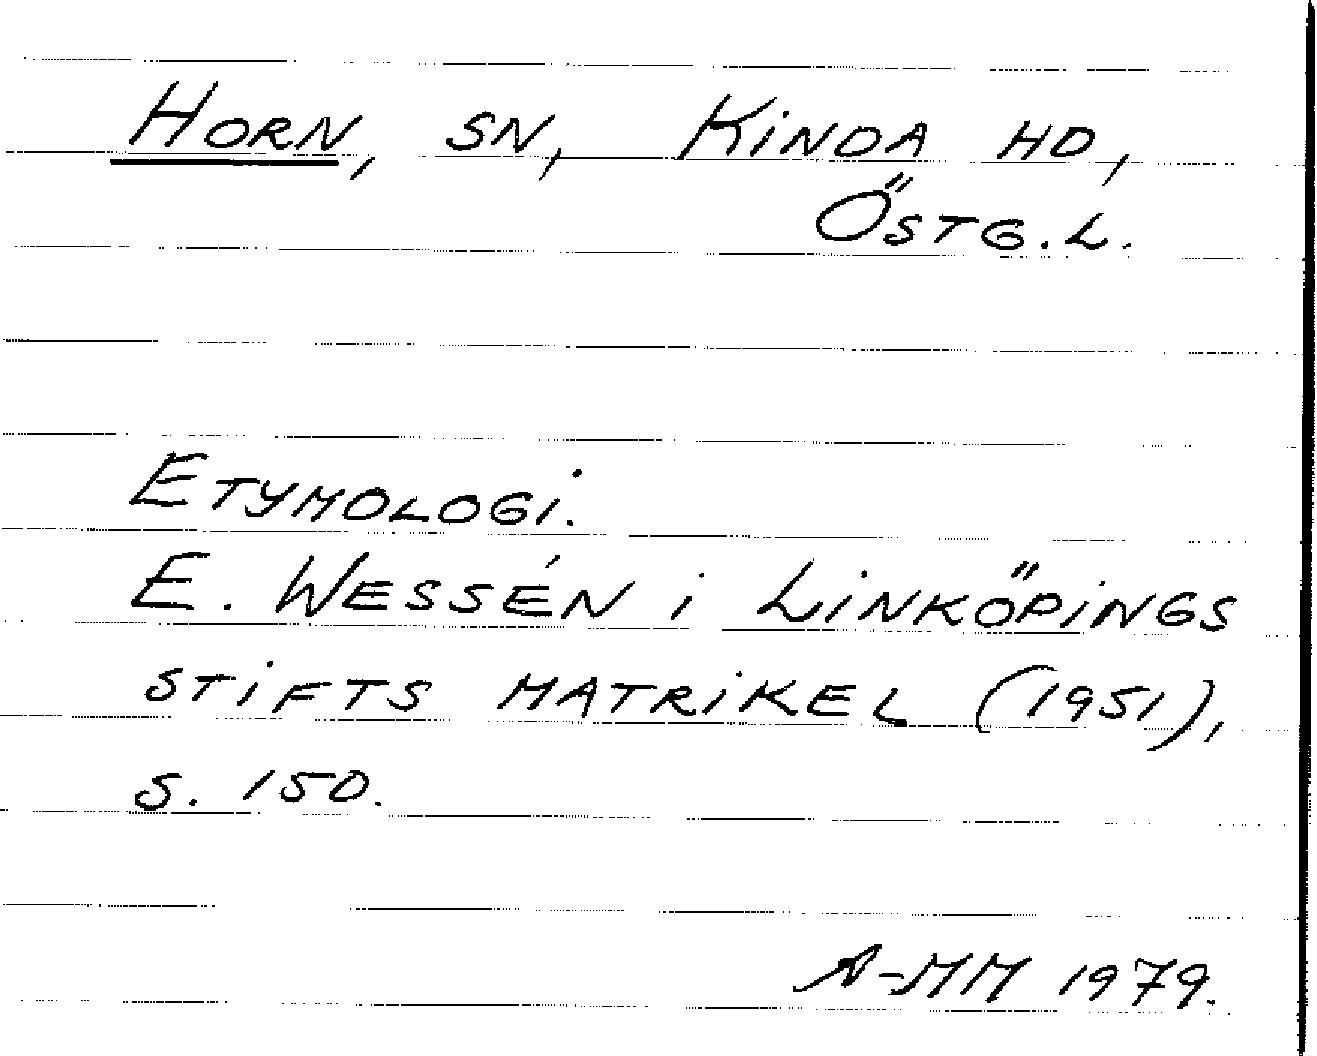 HORN, SN, KINDA HD,
ÖSTG.L.
ETYMOLOGI.
E. WESSÉN i LINKÖPINGS
STIFTS MATRIKEL (1951),
S. 150.
A-MM 1979.